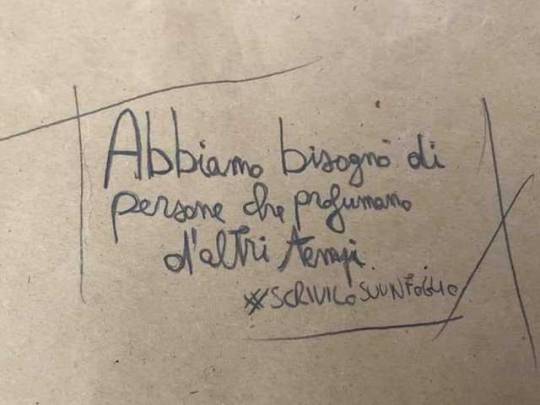 Abbiamo bisogno di
persone che profumano
d'altri tempi.
#SCRIVILOSUUNFOGLIO